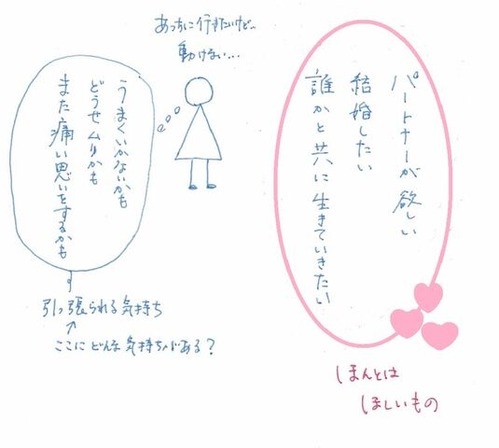 あっちに行きたいけど…
動けない…
うまくいかないかも
どうせムリかも
また痛い思いをするかも
引っ張られる気持ち
ここにどんな気持ちがある？
パートナーが欲しい
結婚したい
誰かと共に生きていきたい
ほんとは
ほしいもの